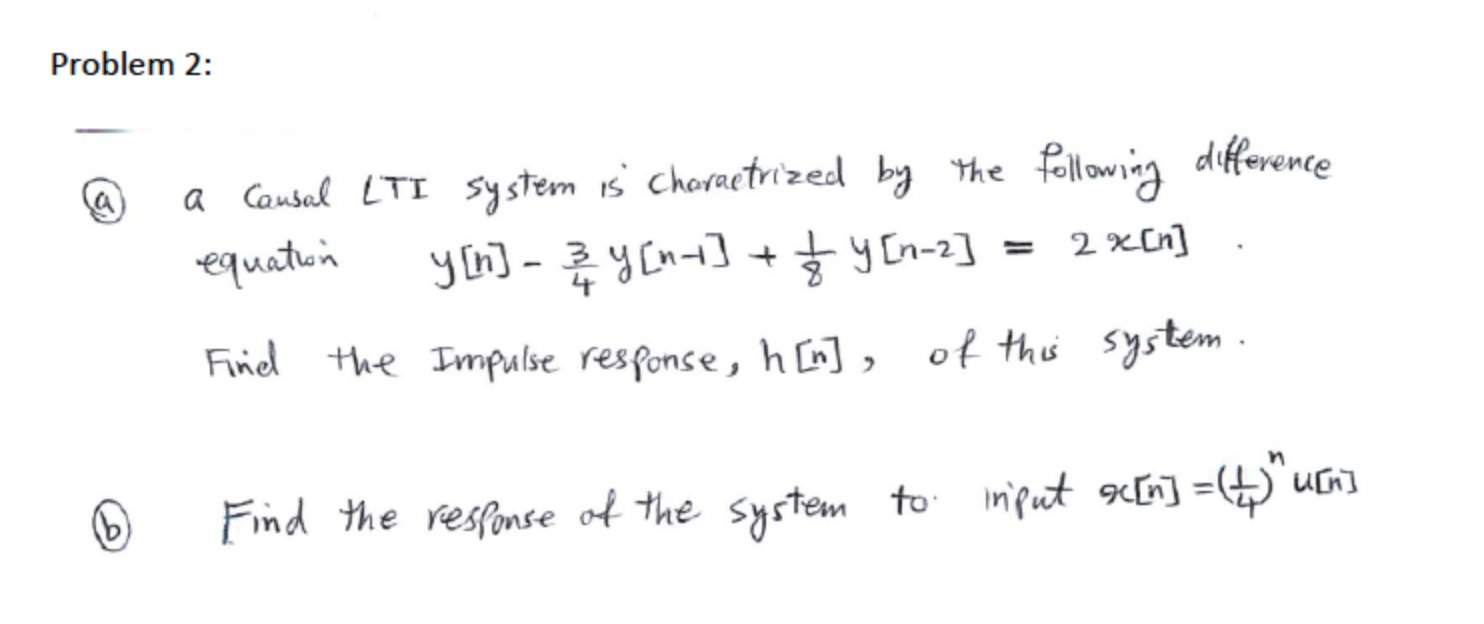 Problem 2:
(a) a Causal LTI system is charactrized by the following difference
equation y[n] - 3/4 y[n-1] + 1/8 y[n-2] = 2 x[n] .
Find the Impulse response, h[n], of this system.
(b) Find the response of the system to input x[n] = (1/4)^n u[n]